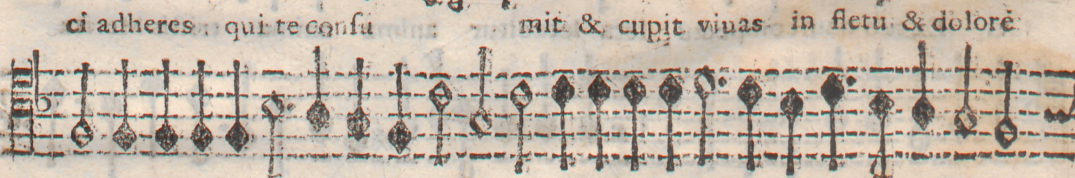 ci adheres qui te consu mit & cupit viuas in fletu & dolore